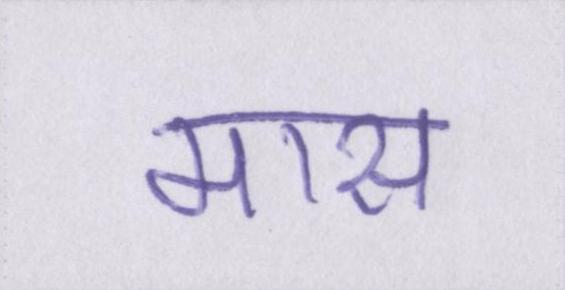 मास